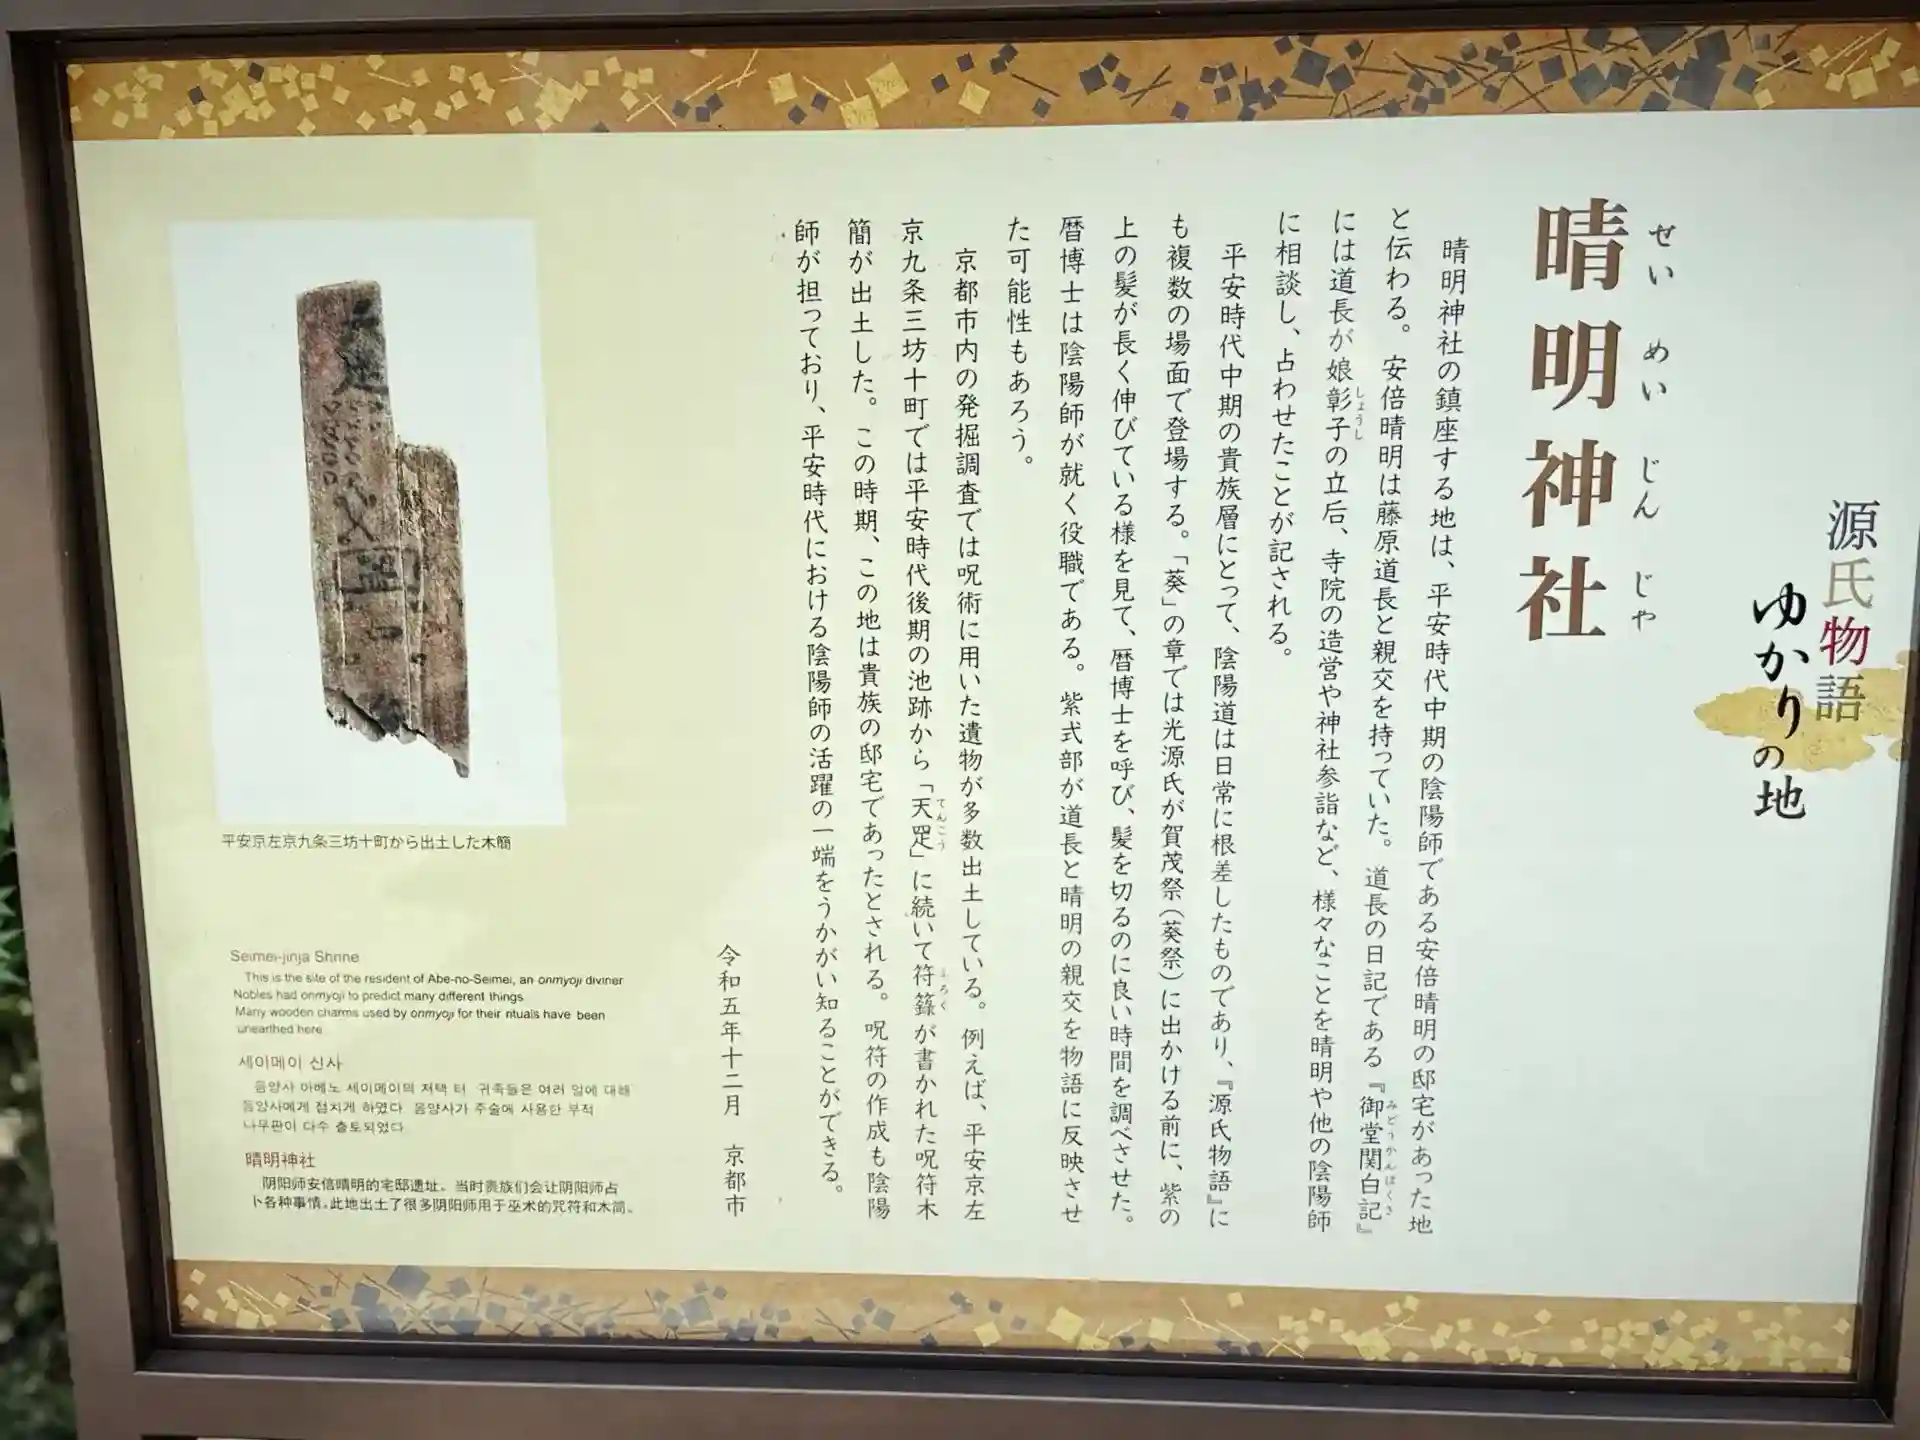 源氏物語
ゆかりの地
せいめいじんじゃ
晴明神社
晴明神社の鎮座する地は、平安時代中期の陰陽師である安倍晴明の邸宅があった地
と伝わる。安倍晴明は藤原道長と親交を持っていた。道長の日記である『御堂関白記』
みどうかんぱくき
には道長が娘彰子の立后、寺院の造営や神社参詣など、様々なことを晴明や他の陰陽師
しょうし
に相談し、占わせたことが記される。
平安時代中期の貴族層にとって、陰陽道は日常に根差したものであり、『源氏物語』に
も複数の場面で登場する。「葵」の章では光源氏が賀茂祭(葵祭)に出かける前に、紫の
上の髪が長く伸びている様を見て、暦博士を呼び、髪を切るのに良い時間を調べさせた。
暦博士は陰陽師が就く役職である。紫式部が道長と晴明の親交を物語に反映させ
た可能性もあろう。
京都市内の発掘調査では呪術に用いた遺物が多数出土している。例えば、平安京左
京九条三坊十町では平安時代後期の池跡から「天罡」に続いて符籙が書かれた呪符木
てんこう
ふろく
簡が出土した。この時期、この地は貴族の邸宅であったとされる。呪符の作成も陰陽
師が担っており、平安時代における陰陽師の活躍の一端をうかがい知ることができる。
令和五年十二月 京都市
平安京左京九条三坊十町から出土した木簡
Seimei-jinja Shrine
This is the site of the resident of Abe-no-Seimei, an onmyoji diviner
Nobles had onmyoji to predict many different things
Many wooden charms used by onmyoji for their rituals have been
unearthed here
세이메이 신사
음양사 아베노 세이메이의 저택 터 귀족들은 여러 일에 대해
음양사에게 점치게 하였다 음양사가 주술에 사용한 부적
나무판이 다수 출토되었다
晴明神社
阴阳师安倍晴明的宅邸遗址。当时贵族们会让阴阳师占
卜各种事情。此地出土了很多阴阳师用于巫术的咒符和木简。